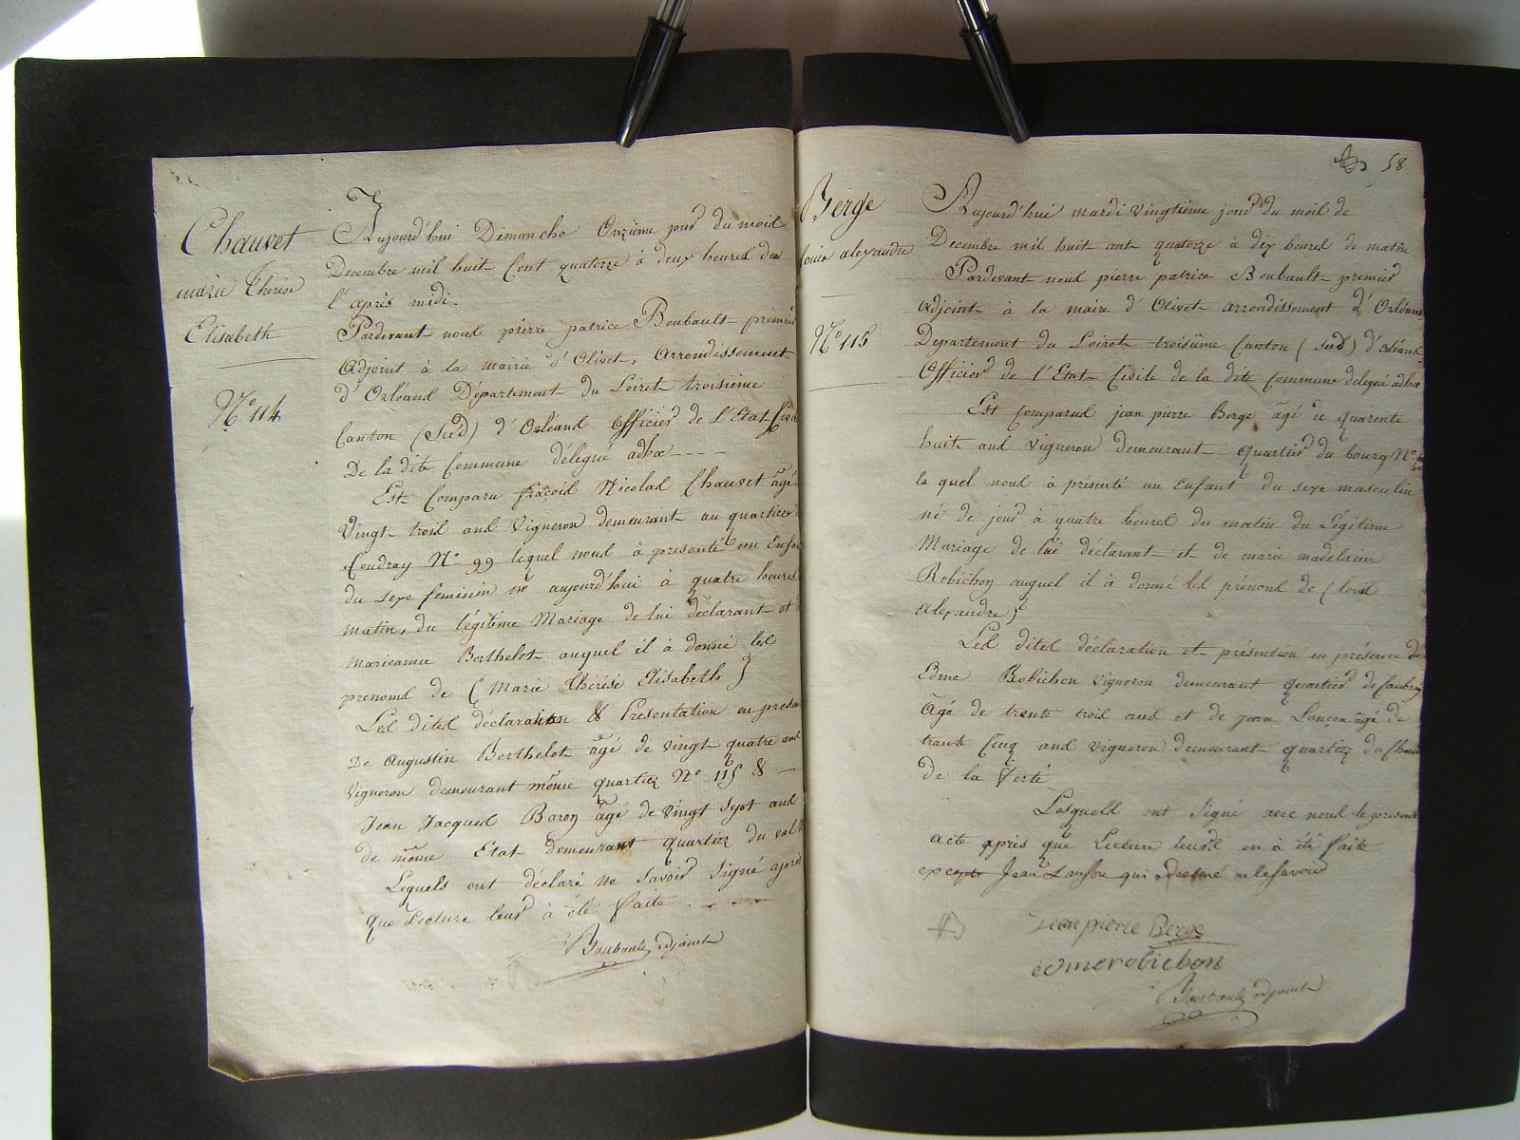 Chauvet
marie Thérèse
Elisabeth
N° 114
Aujourd'hui Dimanche Onzième jour du mois
Decembre mil huit Cent quatorze à deux heures de
l'après midi.
Pardevant nous pierre patrice Boubault premier
Adjoint à la mairie d'Olivet, Arrondissement
d'Orléans Département du Loiret troisième
Canton (Sud) d'Orléans Officier de l'Etat Civil
De la dite Commune délégué adhoc
Est Comparu françois Nicolas Chauvet âgé
Vingt trois ans Vigneron demeurant au quartier
Coudray N° 99 lequel nous à presenté un Enfant
du sexe feminin né aujourd'hui à quatre heures
matin, du légitime Mariage de lui déclarant et
marieanne Berthelot auquel il à donné les
prenoms de (Marie Thérèse Elisabeth)
Les dites déclaration & Présentation en presence
De Augustin Berthelot âgé de vingt quatre ans
vigneron demeurant même quartier N° 115 &
Jean Jacques Baron âgé de vingt sept ans
de même Etat demeurant quartier du val
Lequels ont déclaré ne Savoir Signé après
que Lecture leur à été faite
Boubault adjoint
58
Berge
louis alexandre
N° 115
Aujourd'hui mardi vingtième jour du mois de
Decembre mil huit cent quatorze à dix heures de matin
Pardevant nous pierre patrice Boubault premier
adjoint à la maire d'Olivet arrondissement d'Orléans
Departement du Loiret troisième Canton (sud) d'orléans
Officier de l'Etat Civile de la dite Commune délégué adhoc
Est Comparus jean pierre Berge âgé de quarente
huit ans vigneron demeurant quartier du bourg N°
le quel nous à présenté un Enfant du sexe masculin
né de jour à quatre heures du matin du Légitime
Mariage de lui déclarant et de marie madeleine
Robichon auquel il à donné les prénoms de (louis
alexandre)
Les dites déclaration et présention en présence de
Edme Robichon vigneron demeurant quartier de
âgé de trente trois ans et de jean âgé de
trente Cinq ans vigneron demeurant quartier du
de la ferté
Lesquels ont Signé avec nous le present
acte apprès que Lecture leur en à été faite
excepte Jean qui a declaré ne le savoir
Jean pierre Berge
edme robichon
Boubault adjoint